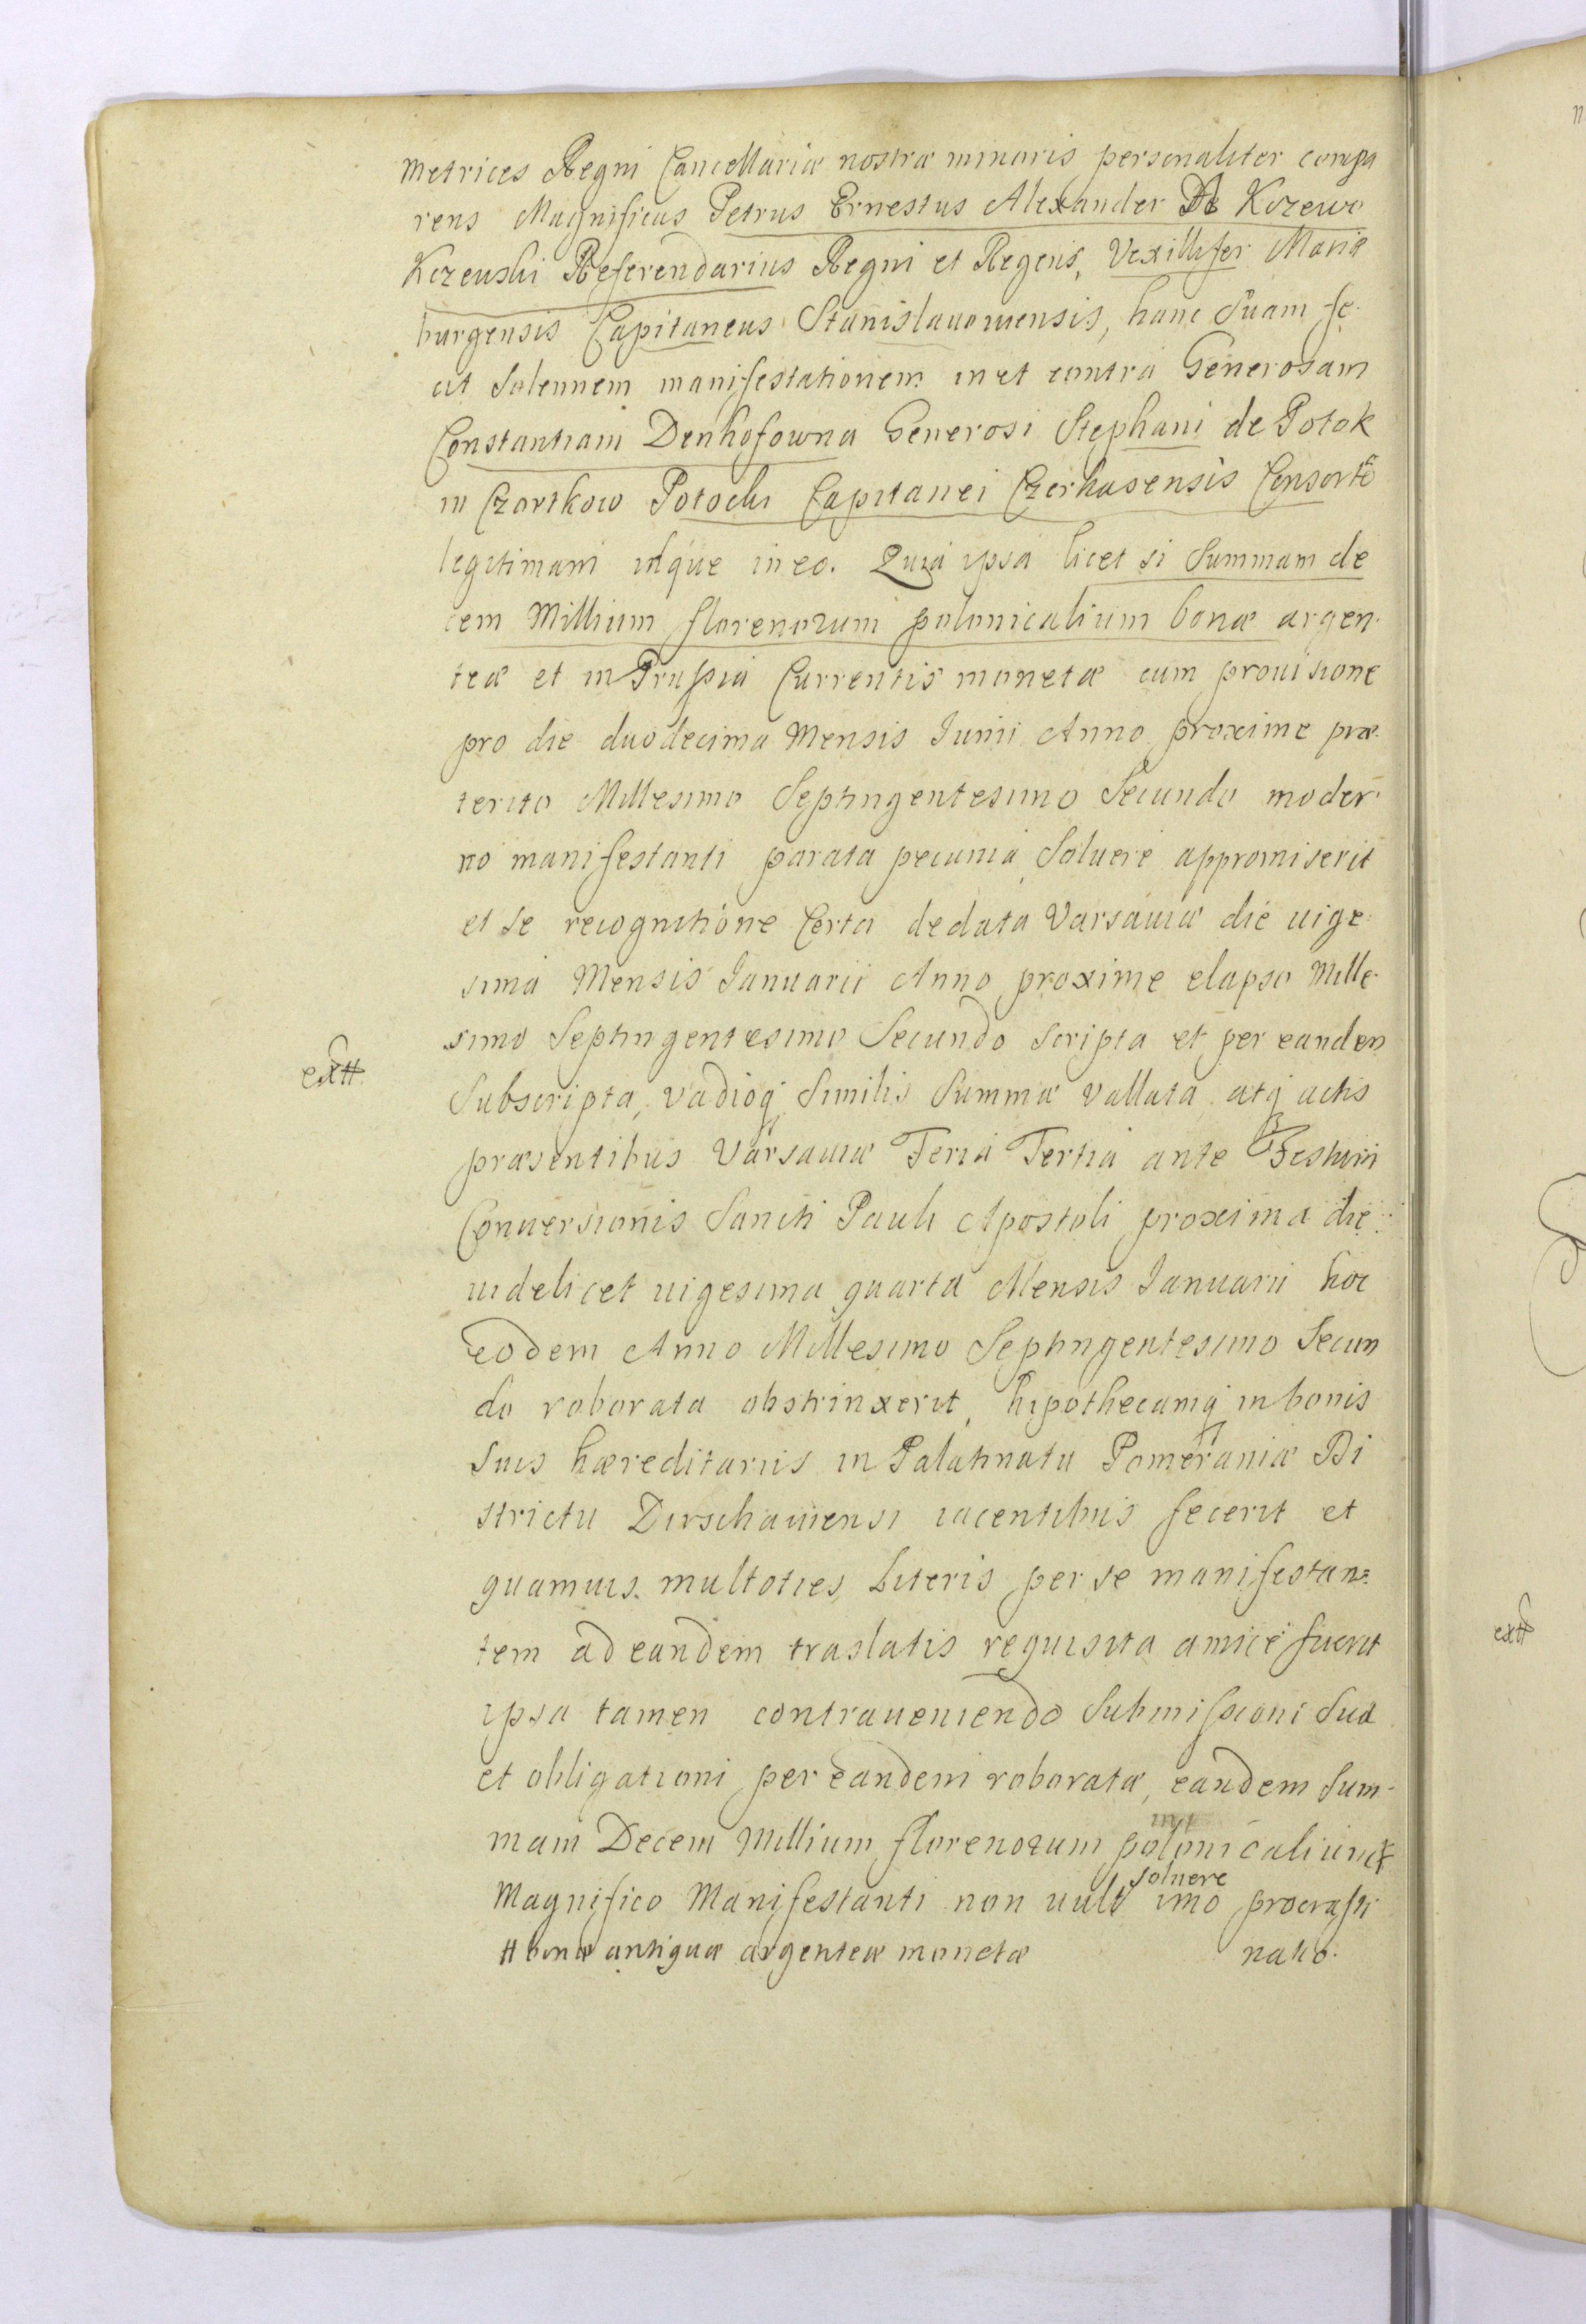 Metrices Regni Cancellariæ nostræ minoris personaliter compa
rens Magnificus Petrus Ernestus Alexander De Kczewo
Kczewski Referendarius Regni et Regens, Vexillifer Mariæ
burgensis Capitaneus Stanislauowiensis, hanc Suam fe
cit Solennem manifestationem in et contra Generosam
Constantiam Denhofowna Generosi Stephani de Potok
in Czortkow Potocki Capitanei Czerkasensis Consortē
legitimam idque in eo. Quia ipsa licet si Summam de
cem Millium florenorum polonicalium bonæ argen
teæ et in Prussia Currentis monetæ cum prouisione
pro die duodecima Mensis Junii Anno proxime præ
terito Millesimo Septingentesimo Secundo moder
no manifestanti parata pecunia Soluere appromiserit
et se recognitione Certa de data Varsauiæ die uige
sima Mensis Januarii Anno proxime elapso Mille
simo Septingentesimo Secundo scripta et per eandem
extt
Subscripta, vadioq Similis Summæ vallata atq actis
præsentibus Varsauiæ Feria Tertia ante Festum
Conuersionis Sancti Pauli Apostoli proxima die
uidelicet uigesima quarta Mensis Januarii hoc
eodem Anno Millesimo Septingentesimo Secun
do roborata obstrinxerit, hipothecamq in bonis
Suis hæreditariis in Palatinatu Pomeraniæ Di
strictu Dirschauiensi iacentibus fecerit et
quamuis multoties Literis per se manifestan=
tem ad eandem traslatis requisita amice fuerit
ipsa tamen contraueniendo Submissioni Suæ
et obligationi per eandem roboratæ, eandem Sum-
mam Decem Millium florenorum polonicalium #
Magnifico Manifestanti non uult soluere imo procrasti
# bonæ antiquæ argenteæ monetæ
natio.
extt